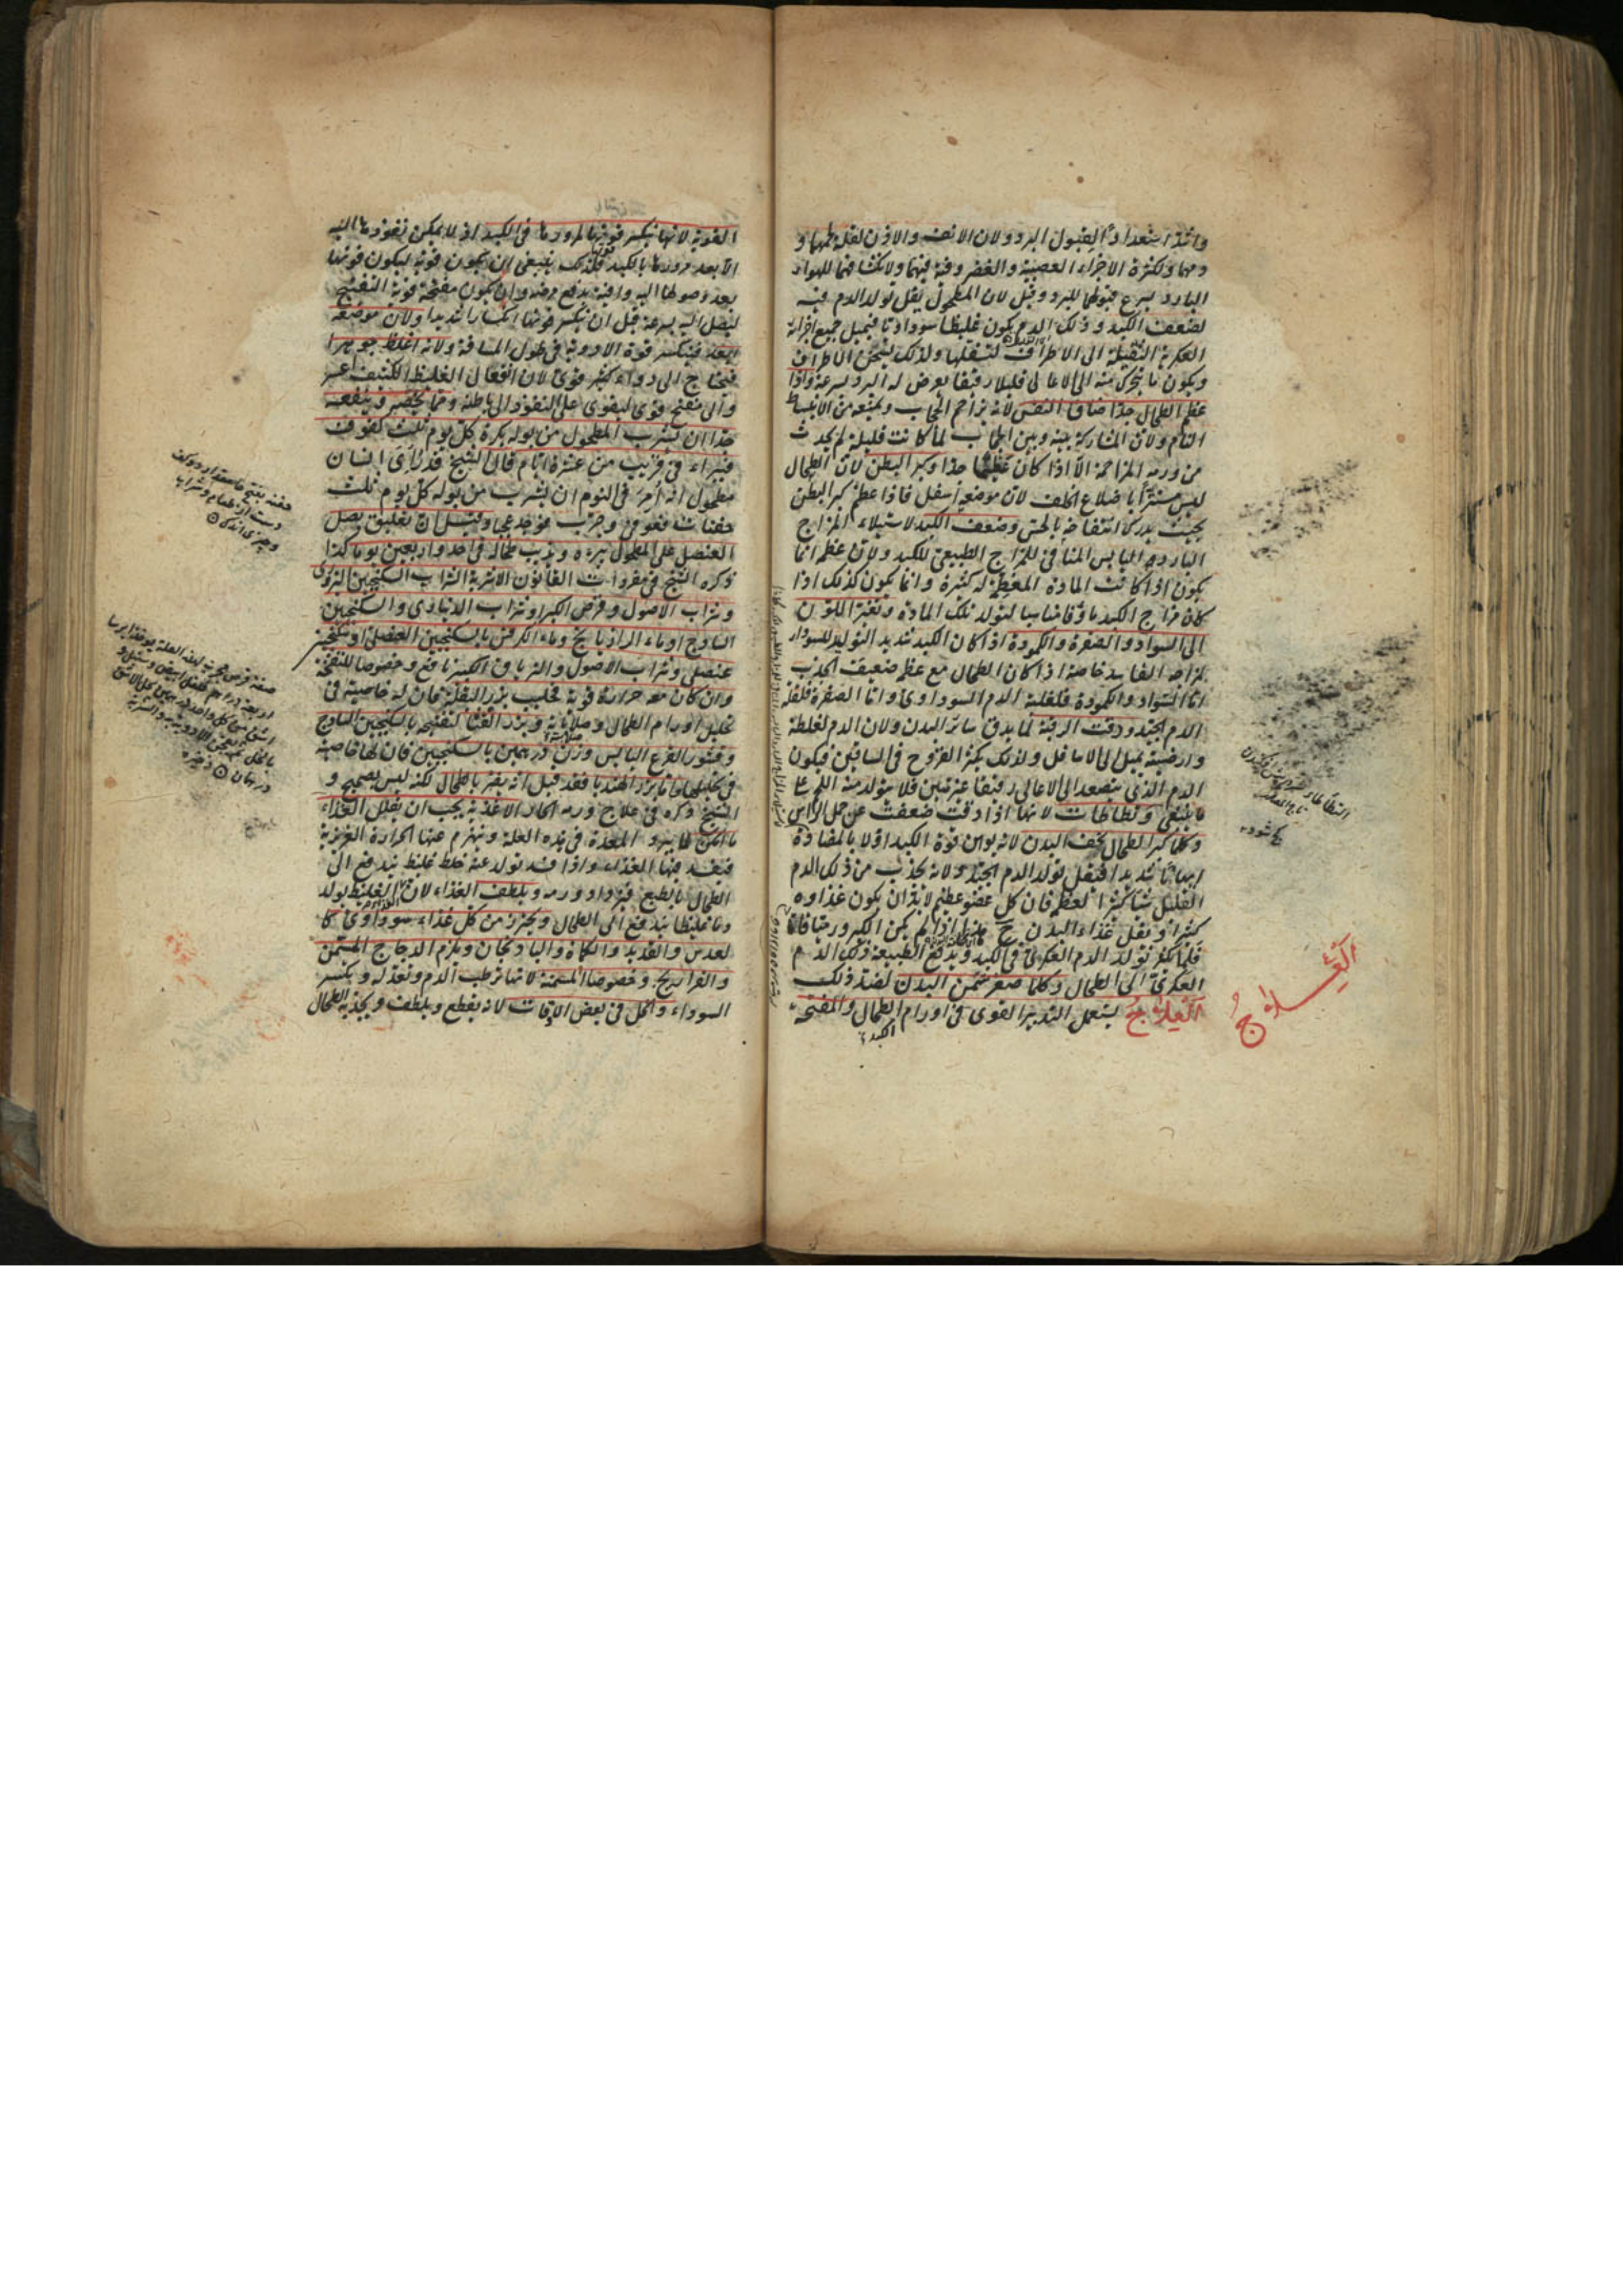 واشد استعدادا لقبول البرد ولان الانف والاذن لقلة لحمها و
دمها ولكثرة الاجزاء العصبية والغضروفية فيهما ولانكشافهما للهواء
البارد يسرع قبولهما للبرد وقيل لان المطحول يقل تولد الدم فيه
لضعف الكبد وذلك الدم يكون غليظا سوداويا فيميل جميع اجزائه
العكرية الثقيلة الى الاطراف لتسفلها ولذلك يسخن الاطراف
ويكون ما يتحرك منه الى الاعالى قليلا رقيقا يعرض له البرد بسرعة واذا
عظم الطحال جدا ضاق النفس لانه يزاحم الحجاب ويمنعه من الانبساط
التام ولان المشاركة بينه وبين الحجاب لما كانت قليلة لم يحدث
من ورمه المزاحمة الا اذا كان عظيما جدا وكبر البطن لان الطحال
ليس مستترا باضلاع الخلف لان موضعه اسفل فاذا عظم كبر البطن
بحيث يدرك انتفاخه بالحس وضعف الكبد لاستيلاء المزاج
البارد اليابس المنافى للمزاج الطبيعى للكبد ولان عظمه انما
يكون اذا كانت المادة المعظمة له كثيرة وانما يكون كذلك اذا
كان مزاج الكبد ماؤفا مناسبا لتولد تلك المادة وتغير اللون
الى السواد والصفرة والكمودة اذا كان الكبد شديد التوليد للسوداء
لمزاجه الفاسد خاصة اذا كان الطحال مع عظمه ضعيف الجذب
اما السواد والكمودة فلغلبة الدم السوداوى واما الصفرة فلقلة
الدم الجيد ودقت الرقبة لما يدق سائر البدن ولان الدم لغلظه
وارضيته يميل الى الاسافل ولذلك يكثر القروح فى الساقين فيكون
الدم الذى يتصعد الى الاعالى رقيقا غير متين فلا يتولد منه اللحم على
ما ينبغى وتطاطات لانها اذا دقت ضعفت عن حمل الراس
وكلما كبر الطحال نحف البدن لانه يوهن قوة الكبد اولا بالمضادة
ايهانا شديدا فيقل تولد الدم الجيد ولانه يجذب من ذلك الدم
القليل شيا كثيرا لعظمه فان كل عضو عظيم لابد ان يكون غذاوه
كثيرا ويقل غذاء البدن ح
فلما يكثر تولد الدم العكرى فى الكبد ويدفع الطبيعة ذلك الدم
العكرى الى الطحال وكلما صغر سمن البدن لضد ذلك
العلاج يستعمل التدبير القوى فى اورام الطحال والمفتحة
الكبد
العلاج
القوية لانها ينكسر قوتها لمرورها فى الكبد اذ لا يمكن نفوذها اليه
الا بعد مرورها بالكبد فلذلك ينبغى ان يكون قوية ليكون قوتها
بعد وصولها اليه وافية بدفع مرضه وان يكون مفتحة قوية التفتيح
ليصل اليه بسرعة قبل ان ينكسر قوتها انكسارا شديدا ولان موضعه
ابعد فينكسر قوة الادوية فى طول المسافة ولانه اغلظ جوهرا
فيحتاج الى دواء كثير قوى لان انفعال الغليظ الكثيف اعسر
والى مفتح قوى ليقوى على النفوذ الى باطنه ومما يختص وينفعه
جدا ان يشرب المطحول من بوله بكرة كل يوم ثلث كفوف
فيبراء فى قريب من عشرة ايام قال الشيخ قد رأى انسان
مطحول انه امر فى النوم ان يشرب من بوله كل يوم ثلث
حفنات فعوفى وجرب فوجد عجيبا وقيل ان تعليق بصل
العنصل على المطحول يبرءه ويذيب طحاله فى احد واربعين يوما كذا
ذكره الشيخ فى مفردات القانون الاشربة الشراب السكنجبين البزورى
وشراب الاصول وقرص الكبر وشراب الدينارى والسكنجبين
الساذج او ماء الرازيانج وماء الكرفس بالسكنجبين العنصلى او سكنجبين
عنصلى وشراب الاصول والترياق الكبير نافع وخصوصا للنفخة
وان كان معه حرارة قوية فحليب بزر البقلة فان له خاصية فى
تحليل اورام الطحال وصلاباته وبزر القثاء لتفتيحه بالسكنجبين الساذج
وقشور القرع اليابس وزن درهمين بالسكنجبين فان لها خاصية
فى تحليلها واما بزر الهندبا فقد قيل انه يضر بالطحال لكنه ليس بصحيح و
الشيخ ذكره فى علاج ورمه الحار الاغذية يجب ان يقلل الغذاء
ما امكن لما يبرد المعدة فى هذه العلة وينهزم عنها الحرارة الغريزية
فيفسد فيها الغذاء واذا فسد تولد عنه خلط غليظ يندفع الى
الطحال بالطبع فيزداد ورمه ويلطف الغذاء لان الغليظ يولد
دما غليظا يندفع الى الطحال ويحترز من كل غذاء سوداوى كا
لعدس والقديد والكماة والباذنجان ويلزم الدجاج المسمن
والفراريج وخصوصا المسمنة لانها ترطب الدم وتعدله ويكسر
السوداء والخل فى بعض الاوقات لانه يقطع ويلطف ويجذبه الطحال